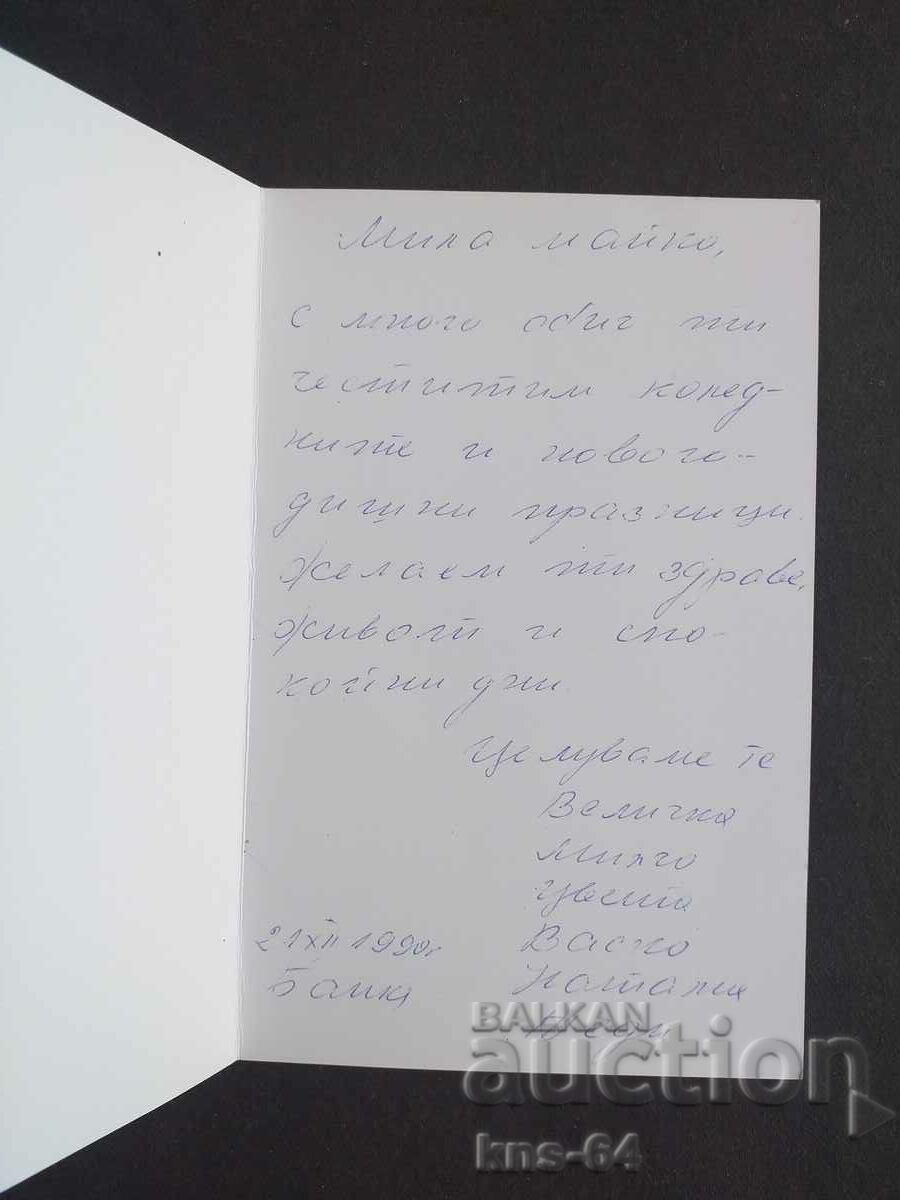 Мила майко,
с много обич ти
честитим колед-
ните и нового-
дишни празници.
Желаем ти здраве,
живот и спо-
койни дни.
Целуваме те
Величка
Милчо
Цвета
Васко
21 XII 1990г.
Наталия
Банкя
BALKAN
auction
kns-64